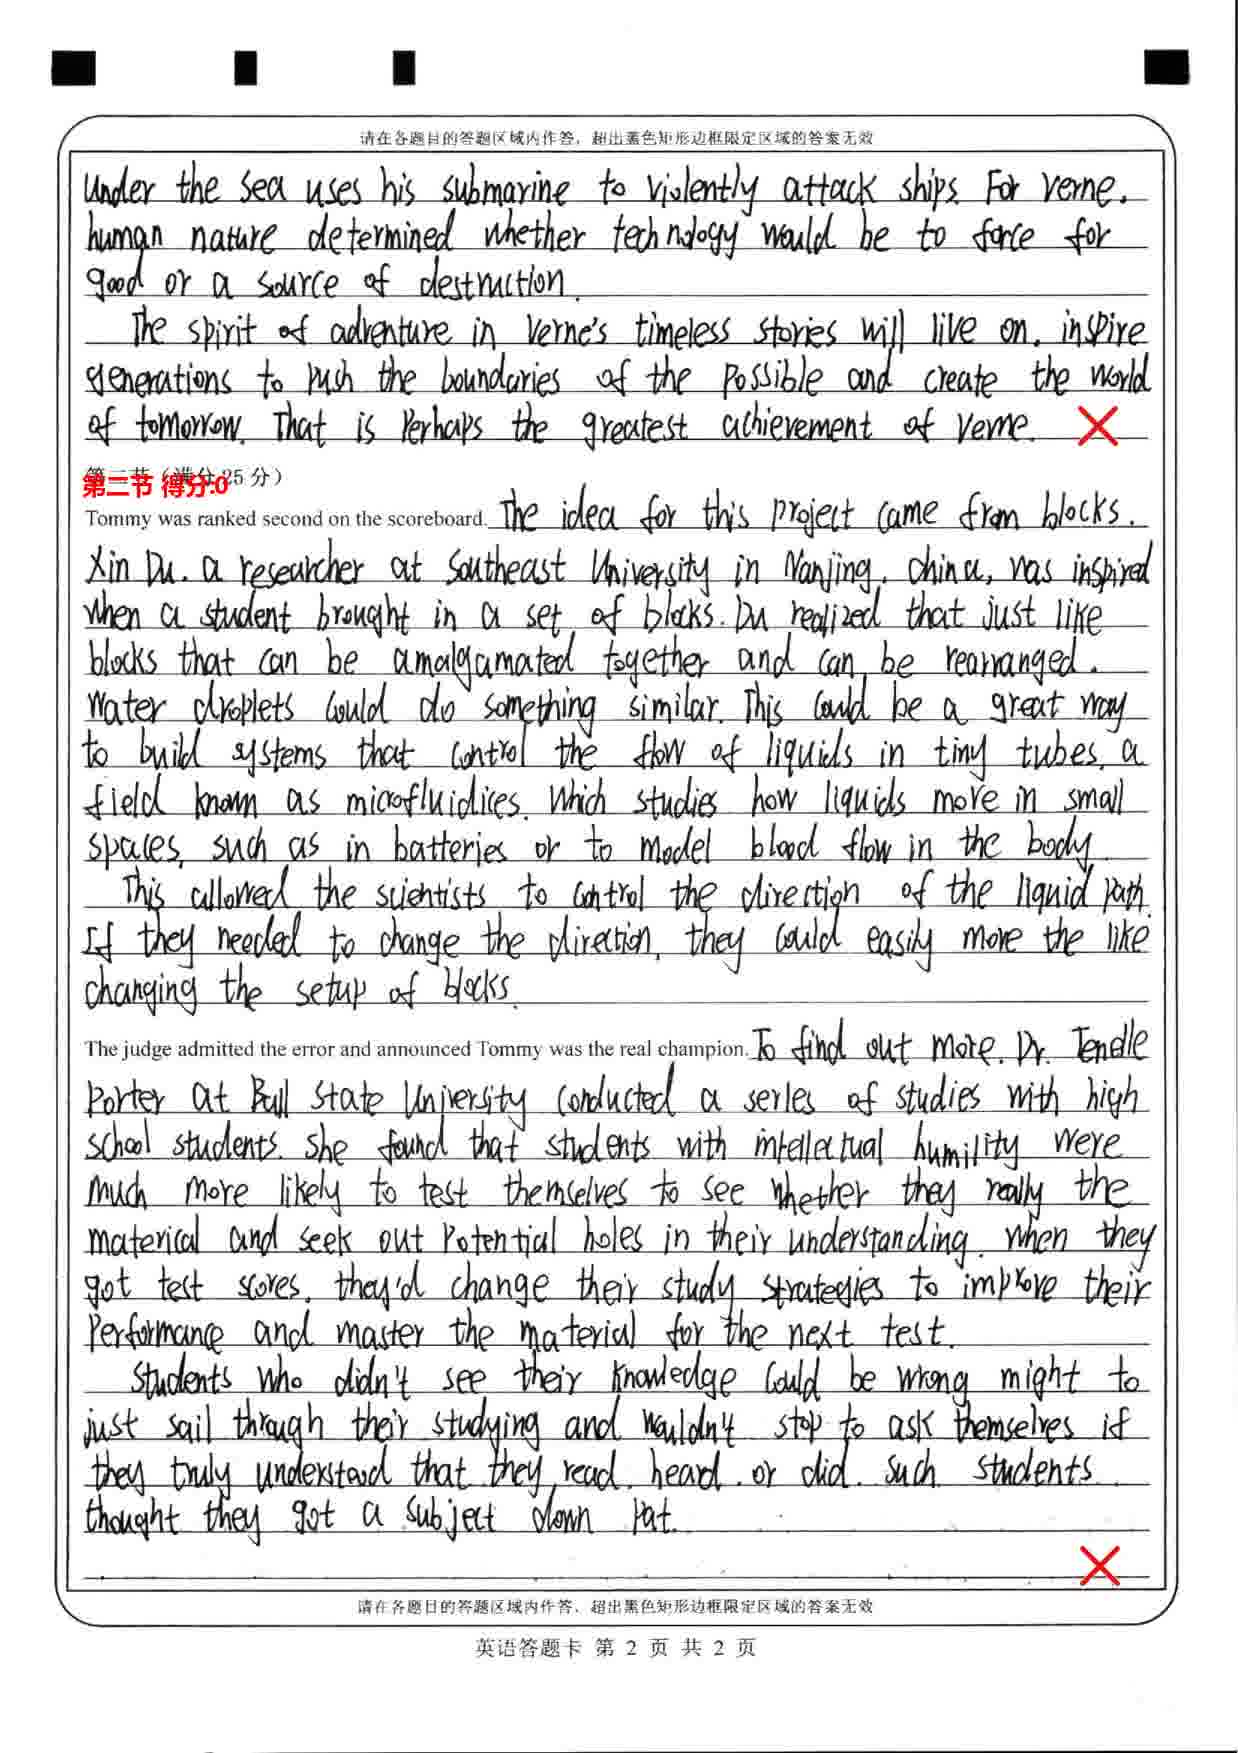 请在各题目的答题区域内作答，超出黑色矩形边框限定区域的答案无效
Under the sea uses his submarine to violently attack ships. For Verne.
human nature determined whether technology would be to force for
good or a source of destruction.
The spirit of adventure in Verne's timeless stories will live on. inspire
generations to push the boundaries of the possible and create the world
of tomorrow. That is Perhaps the greatest achievement of Verne.
第二节（满分25分）
第二节 得分:0
Tommy was ranked second on the scoreboard. The idea for this project came from blocks.
Xin Du. a researcher at Southeast University in Nanjing. china, was inspired
when a student brought in a set of blocks. Du realized that just like
blocks that can be amalgamated together and can be rearranged.
Water droplets could do something similar. This could be a great way
to build systems that control the flow of liquids in tiny tubes. a
field known as microfluidices. Which studies how liquids move in small
spaces, such as in batteries or to model blood flow in the body.
This allowed the scientists to control the direction of the liquid path.
If they needed to change the direction, they could easily move the like
changing the setup of blocks.
The judge admitted the error and announced Tommy was the real champion. To find out more. Dr. Tenelle
Porter at Ball State University conducted a series of studies with high
school students. She found that students with intellectual humility were
much more likely to test themselves to see whether they really the
materical and seek out potential holes in their understanding. When they
got test scores. they'd change their study strategies to improve their
Performance and master the material for the next test.
Students who didn't see their knowledge could be wrong might to
just sail through their studying and wouldn't stop to ask themselves if
they truly understood that they read. heard. or did. Such students
thought they got a subject down pat.
请在各题目的答题区域内作答，超出黑色矩形边框限定区域的答案无效
英语答题卡 第 2 页 共 2 页